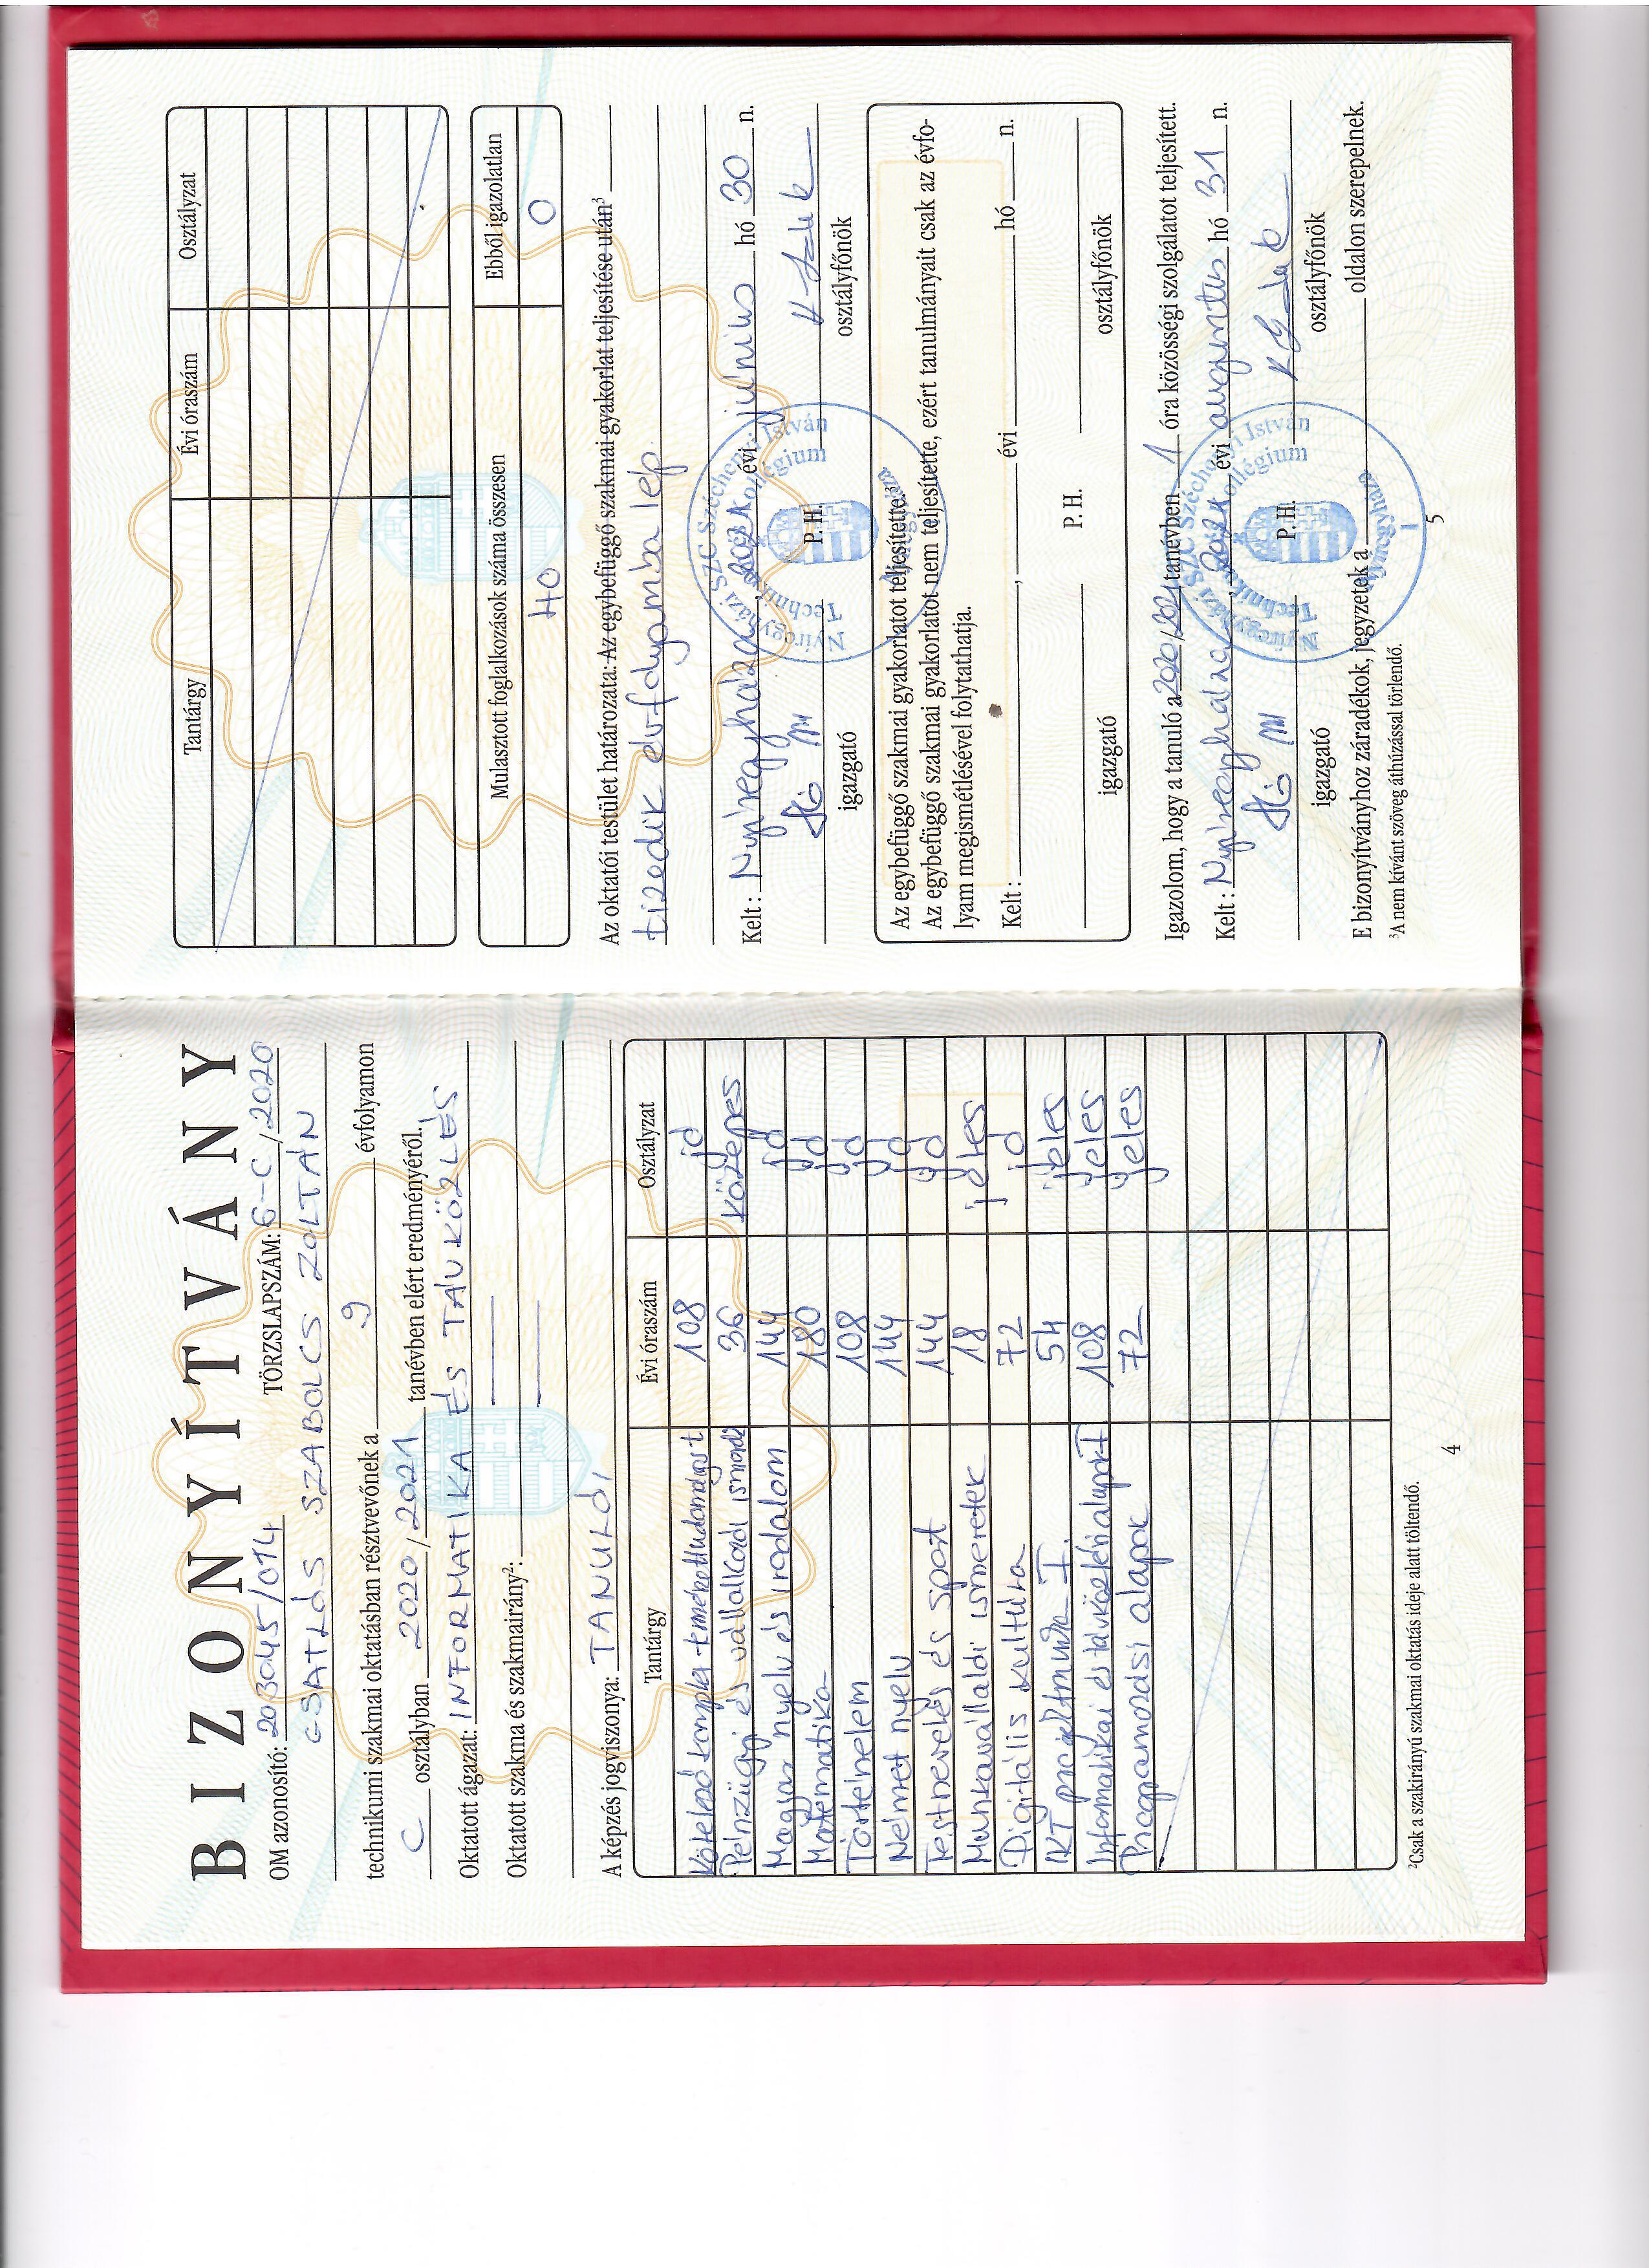 BIZONYÍTVÁNY
OM azonosító: 203045/014 TÖRZSLAPSZÁM: 6-C/2020
CSATLÓS SZABOLCS ZOLTÁN
technikumi szakmai oktatásban résztvevőnek a 9 évfolyamon
C osztályban 2020/2021 tanévben elért eredményéről.
Oktatott ágazat: INFORMATIKA ÉS TÁVKÖZLÉS
Oktatott szakma és szakmairány²:
A képzés jogviszonya: TANULÓI
Tantárgy Évi óraszám Osztályzat
Kötelező komplex természettudományt 108 jó
Pénzügyi és vállalkozói ismeretek 36 közepes
Magyar nyelv és irodalom 144 jó
Matematika 180 jó
Történelem 108 jó
Német nyelv 144 jó
Testnevelés és sport 144 jó
Munkavállalói ismeretek 18 jeles
Digitális kultúra 72 jó
IKT projektmunka I. 54 jeles
Informatikai és távközlési alapok I 108 jeles
Programozási alapok 72 jeles
²Csak a szakirányú szakmai oktatás ideje alatt töltendő.
4
Tantárgy Évi óraszám Osztályzat
Mulasztott foglalkozások száma összesen Ebből igazolatlan
40 0
Az oktatói testület határozata: Az egybefüggő szakmai gyakorlat teljesítése után³
tizedik évfolyamba lép
Kelt: Nyíregyháza, 2021 évi június hó 30 n.
P. H.
igazgató osztályfőnök
Nyíregyházi SZC Széchenyi István
Technikum és Kollégium
Az egybefüggő szakmai gyakorlatot teljesítette.³
Az egybefüggő szakmai gyakorlatot nem teljesítette, ezért tanulmányait csak az évfo-
lyam megismétlésével folytathatja.
Kelt: , évi hó n.
P. H.
igazgató osztályfőnök
Igazolom, hogy a tanuló a 2020/2021 tanévben 1 óra közösségi szolgálatot teljesített.
Kelt: Nyíregyháza, 2021 évi augusztus hó 31 n.
P. H.
igazgató osztályfőnök
Nyíregyházi SZC Széchenyi István
Technikum és Kollégium
Nyíregyháza
1
E bizonyítványhoz záradékok, jegyzetek a oldalon szerepelnek.
³A nem kívánt szöveg áthúzással törlendő.
5